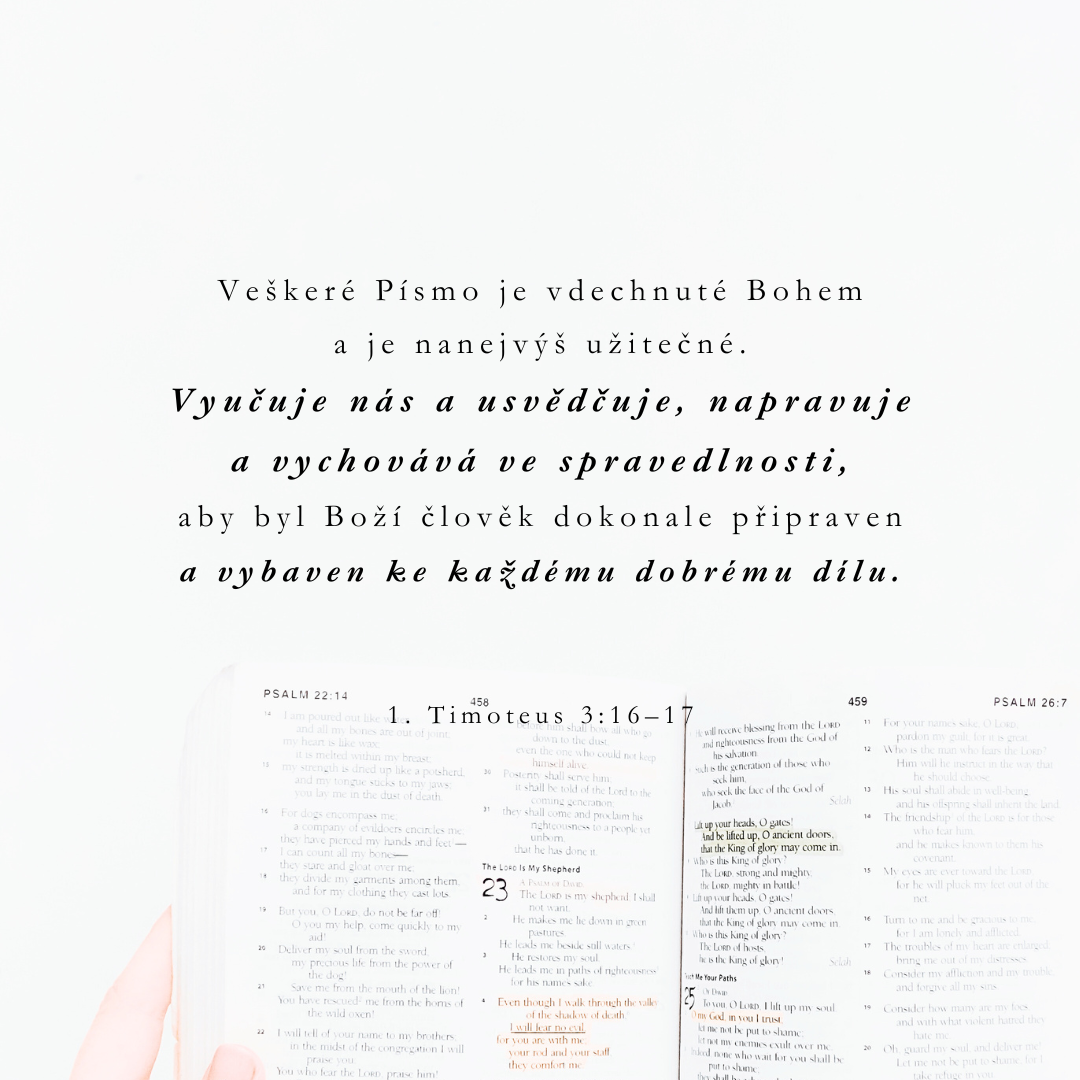 Veškeré Písmo je vdechnuté Bohem
a je nanejvýš užitečné.
Vyučuje nás a usvědčuje, napravuje
a vychovává ve spravedlnosti,
aby byl Boží člověk dokonale připraven
a vybaven ke každému dobrému dílu.
1. Timoteus 3:16–17
PSALM 22:14
458
14 I am poured out like
and all my bones are out of joint;
my heart is like wax;
it is melted within my breast;
15 my strength is dried up like a potsherd,
and my tongue sticks to my jaws;
you lay me in the dust of death.
16 For dogs encompass me;
a company of evildoers encircles me;
they have pierced my hands and feet—
17 I can count all my bones—
they stare and gloat over me;
18 they divide my garments among them,
and for my clothing they cast lots.
19 But you, O LORD, do not be far off!
O you my help, come quickly to my
aid!
20 Deliver my soul from the sword,
my precious life from the power of
the dog!
21 Save me from the mouth of the lion!
You have rescued me from the horns of
the wild oxen!
22 I will tell of your name to my brothers;
in the midst of the congregation I will
praise you:
You who fear the LORD, praise him!
him shall bow all who go
down to the dust,
even the one who could not keep
himself alive.
30 Posterity shall serve him;
it shall be told of the Lord to the
coming generation;
31 they shall come and proclaim his
righteousness to a people yet
unborn,
that he has done it.
The LORD Is My Shepherd
23 A PSALM OF DAVID.
The LORD is my shepherd; I shall
not want.
2 He makes me lie down in green
pastures.
He leads me beside still waters.
3 He restores my soul.
He leads me in paths of righteousness
for his name's sake.
4 Even though I walk through the valley
of the shadow of death,
I will fear no evil,
for you are with me;
your rod and your staff,
they comfort me.
459
PSALM 26:7
He will receive blessing from the LORD
and righteousness from the God of
his salvation.
Such is the generation of those who
seek him,
who seek the face of the God of
Jacob. Selah
Lift up your heads, O gates!
And be lifted up, O ancient doors,
that the King of glory may come in.
Who is this King of glory?
The LORD, strong and mighty,
the LORD, mighty in battle!
Lift up your heads, O gates!
And lift them up, O ancient doors,
that the King of glory may come in.
Who is this King of glory?
The LORD of hosts,
he is the King of glory! Selah
Me Your Paths
25 OF DAVID.
To you, O LORD, I lift up my soul.
O my God, in you I trust;
let me not be put to shame;
let not my enemies exult over me.
Indeed, none who wait for you shall be
put to shame;
they shall be
11 For your name's sake, O LORD,
pardon my guilt, for it is great.
12 Who is the man who fears the LORD?
Him will he instruct in the way that
he should choose.
13 His soul shall abide in well-being,
and his offspring shall inherit the land.
14 The friendship of the LORD is for those
who fear him,
and he makes known to them his
covenant.
15 My eyes are ever toward the LORD,
for he will pluck my feet out of the
net.
16 Turn to me and be gracious to me,
for I am lonely and afflicted.
17 The troubles of my heart are enlarged;
bring me out of my distresses.
18 Consider my affliction and my trouble,
and forgive all my sins.
19 Consider how many are my foes,
and with what violent hatred they
hate me.
20 Oh, guard my soul, and deliver me!
Let me not be put to shame, for I
take refuge in you.